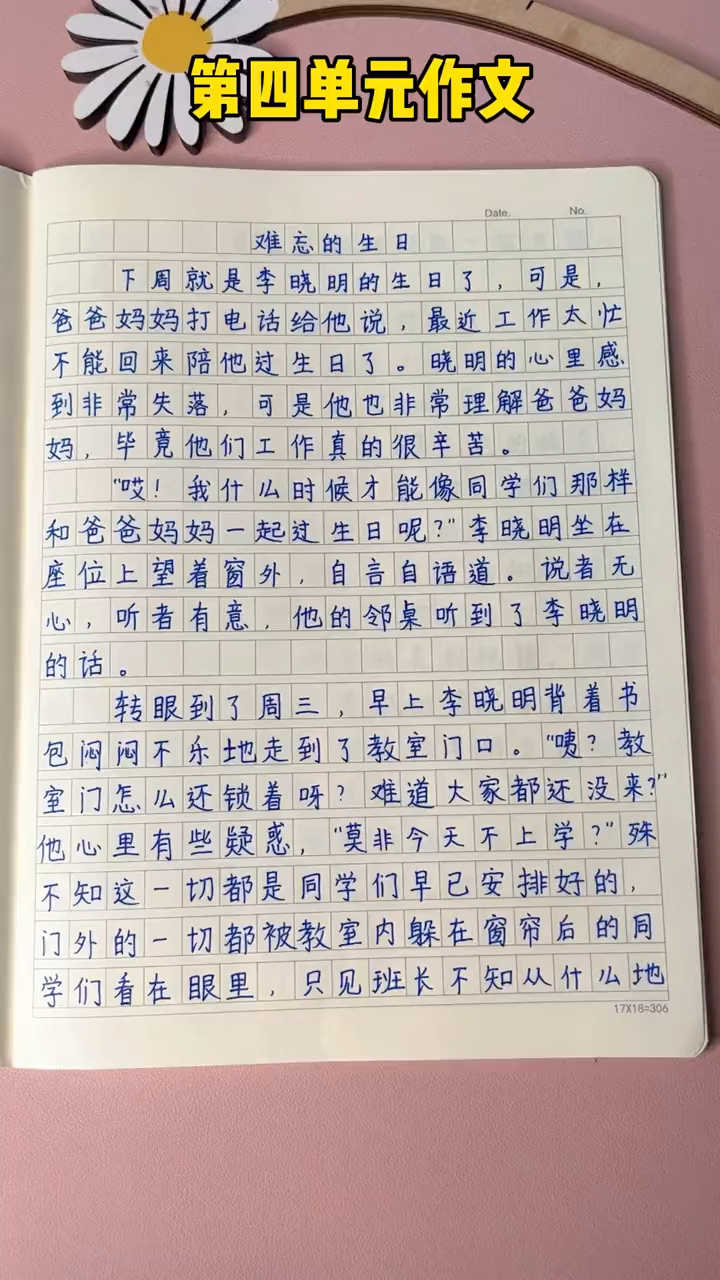 第四单元作文
Date. No.
难忘的生日
下周就是李晓明的生日了，可是，
爸爸妈妈打电话给他说，最近工作太忙
不能回来陪他过生日了。晓明的心里感
到非常失落，可是他也非常理解爸爸妈
妈，毕竟他们工作真的很辛苦。
“哎！我什么时候才能像同学们那样
和爸爸妈妈一起过生日呢？”李晓明坐在
座位上望着窗外，自言自语道。说者无
心，听者有意，他的邻桌听到了李晓明
的话。
转眼到了周三，早上李晓明背着书
包闷闷不乐地走到了教室门口。“咦？教
室门怎么还锁着呀？难道大家都还没来？”
他心里有些疑惑，“莫非今天不上学？”殊
不知这一切都是同学们早已安排好的，
门外的一切都被教室内躲在窗帘后的同
学们看在眼里，只见班长不知从什么地
17X18=306